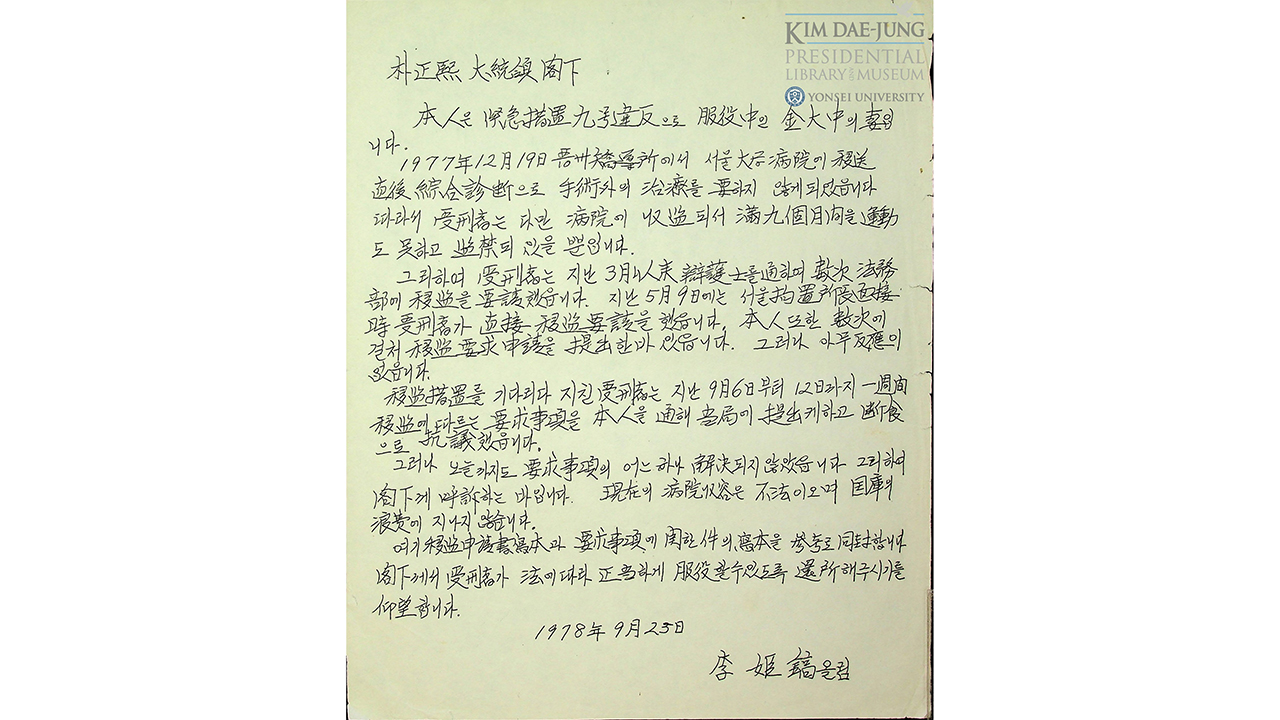 KIM DAE-JUNG
PRESIDENTIAL
LIBRARY AND MUSEUM
YONSEI UNIVERSITY
朴正熙 大統領 閣下
本人은 緊急措置九号違反으로 服役中인 金大中의 妻입
니다.
1977年12月19日 晋州矯導所에서 서울大学病院에 移送
直後 綜合診断으로 手術外의 治療를 要하지 않게되었읍니다
따라서 受刑者는 다만 病院에 收监되서 滿九個月间을 運動
도 못하고 监禁되 있을 뿐입니다.
그리하여 受刑者는 지난 3月 辯護士를通하여 数次 法務
部에 移监을 要請했읍니다. 지난 5月9日에는 서울拘置所長面接
時 受刑者가 直接 移监要請을 했읍니다. 本人또한 数次에
걸쳐 移监要求申請을 提出한바 있읍니다. 그러나 아무反應이
없읍니다.
移监措置를 기다리다 지친 受刑者는 지난 9月6日부터 12日까지 一週间
移监에 따르는 要求事項을 本人을 通해 当局에 提出케하고 断食
으로 抗議했읍니다.
그러나 오늘까지도 要求事項의 어느하나 解決되지않았읍니다 그리하여
閣下께 呼訴하는 바입니다. 現在의 病院收容은 不法이오며 国庫의
浪費에 지나지 않습니다.
여기 移监申請書寫本과 要求事項에 関한件의 寫本을 参考로 同封합니다
閣下께서 受刑者가 法에따라 正当하게 服役할수있도록 還所해주시기를
仰望합니다.
1978年 9月23日
李 姬 鎬올림